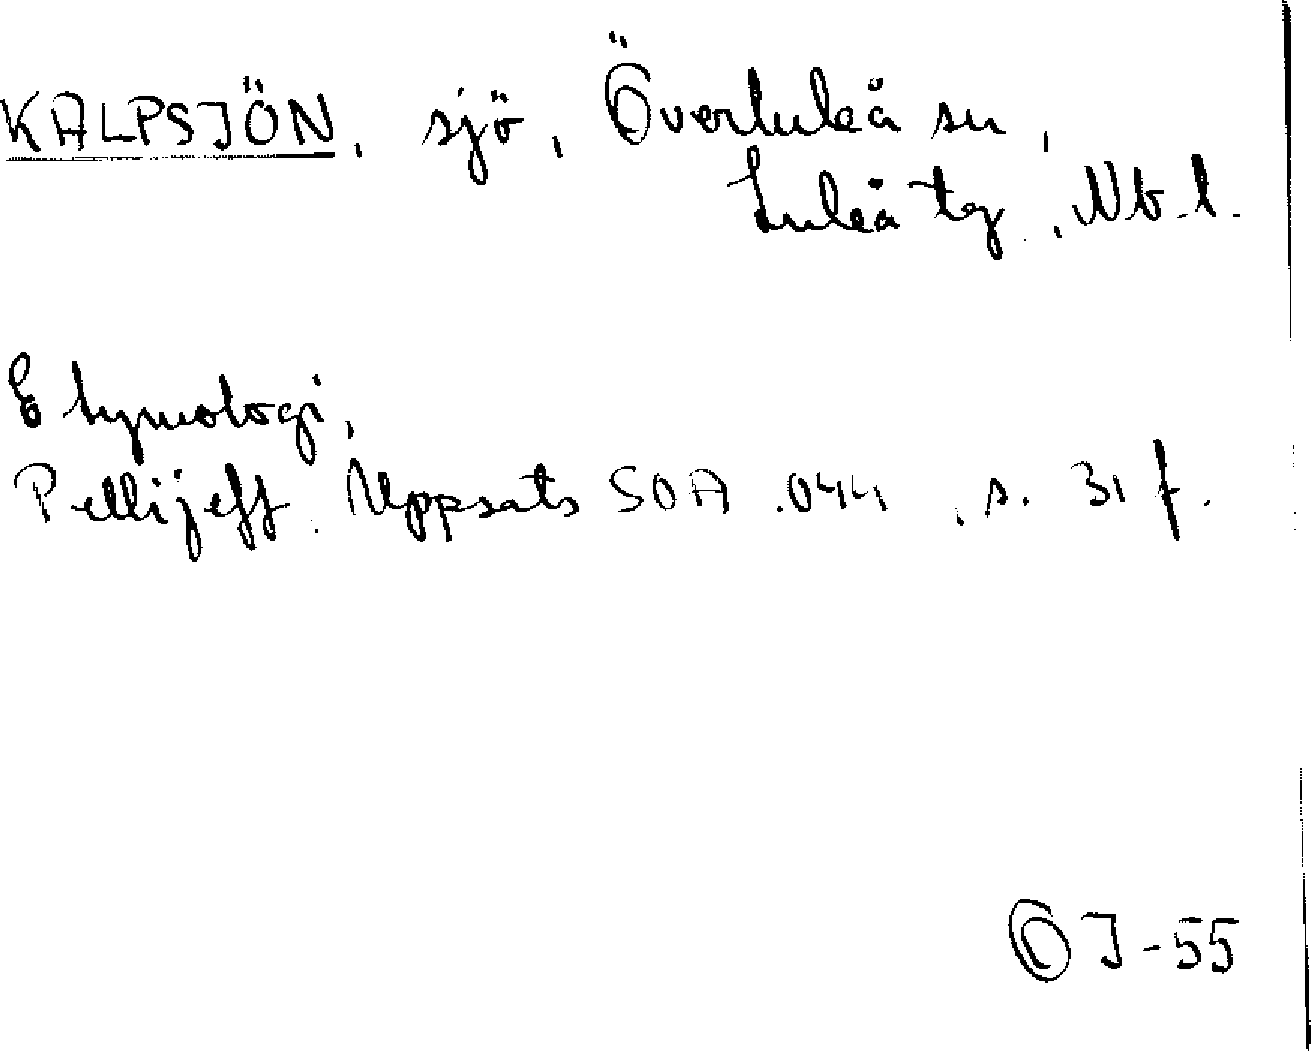 KALPSJÖN, sjö, Överluleå sn,
Luleå tg, Nb.l.
Etymologi,
Pellijeff. Uppsats SOA .044, s. 31 f.
OJ-55